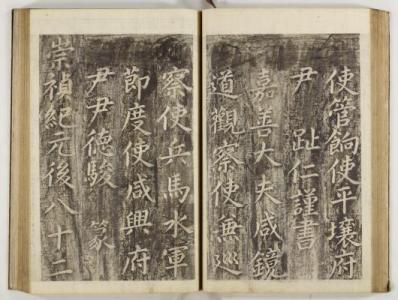 使管餉使平壤府
尹 趾仁謹書
嘉善大夫咸鏡
道觀察使兼巡
察使兵馬水軍
節度使咸興府
尹尹德駿 篆
崇禎紀元後八十二